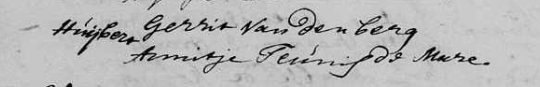 Huijbert Gerrit van den berg
Annitje Teúnis de Mure.